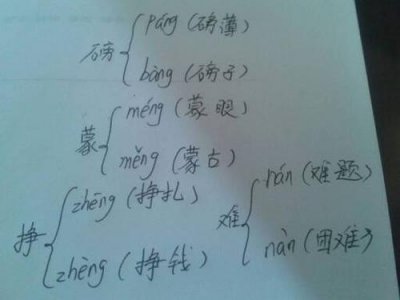 磅 páng (磅薄)
bàng (磅子)
蒙 méng (蒙眼)
měng (蒙古)
挣 zhēng (挣扎)
zhèng (挣钱)
难 nán (难题)
nàn (困难)